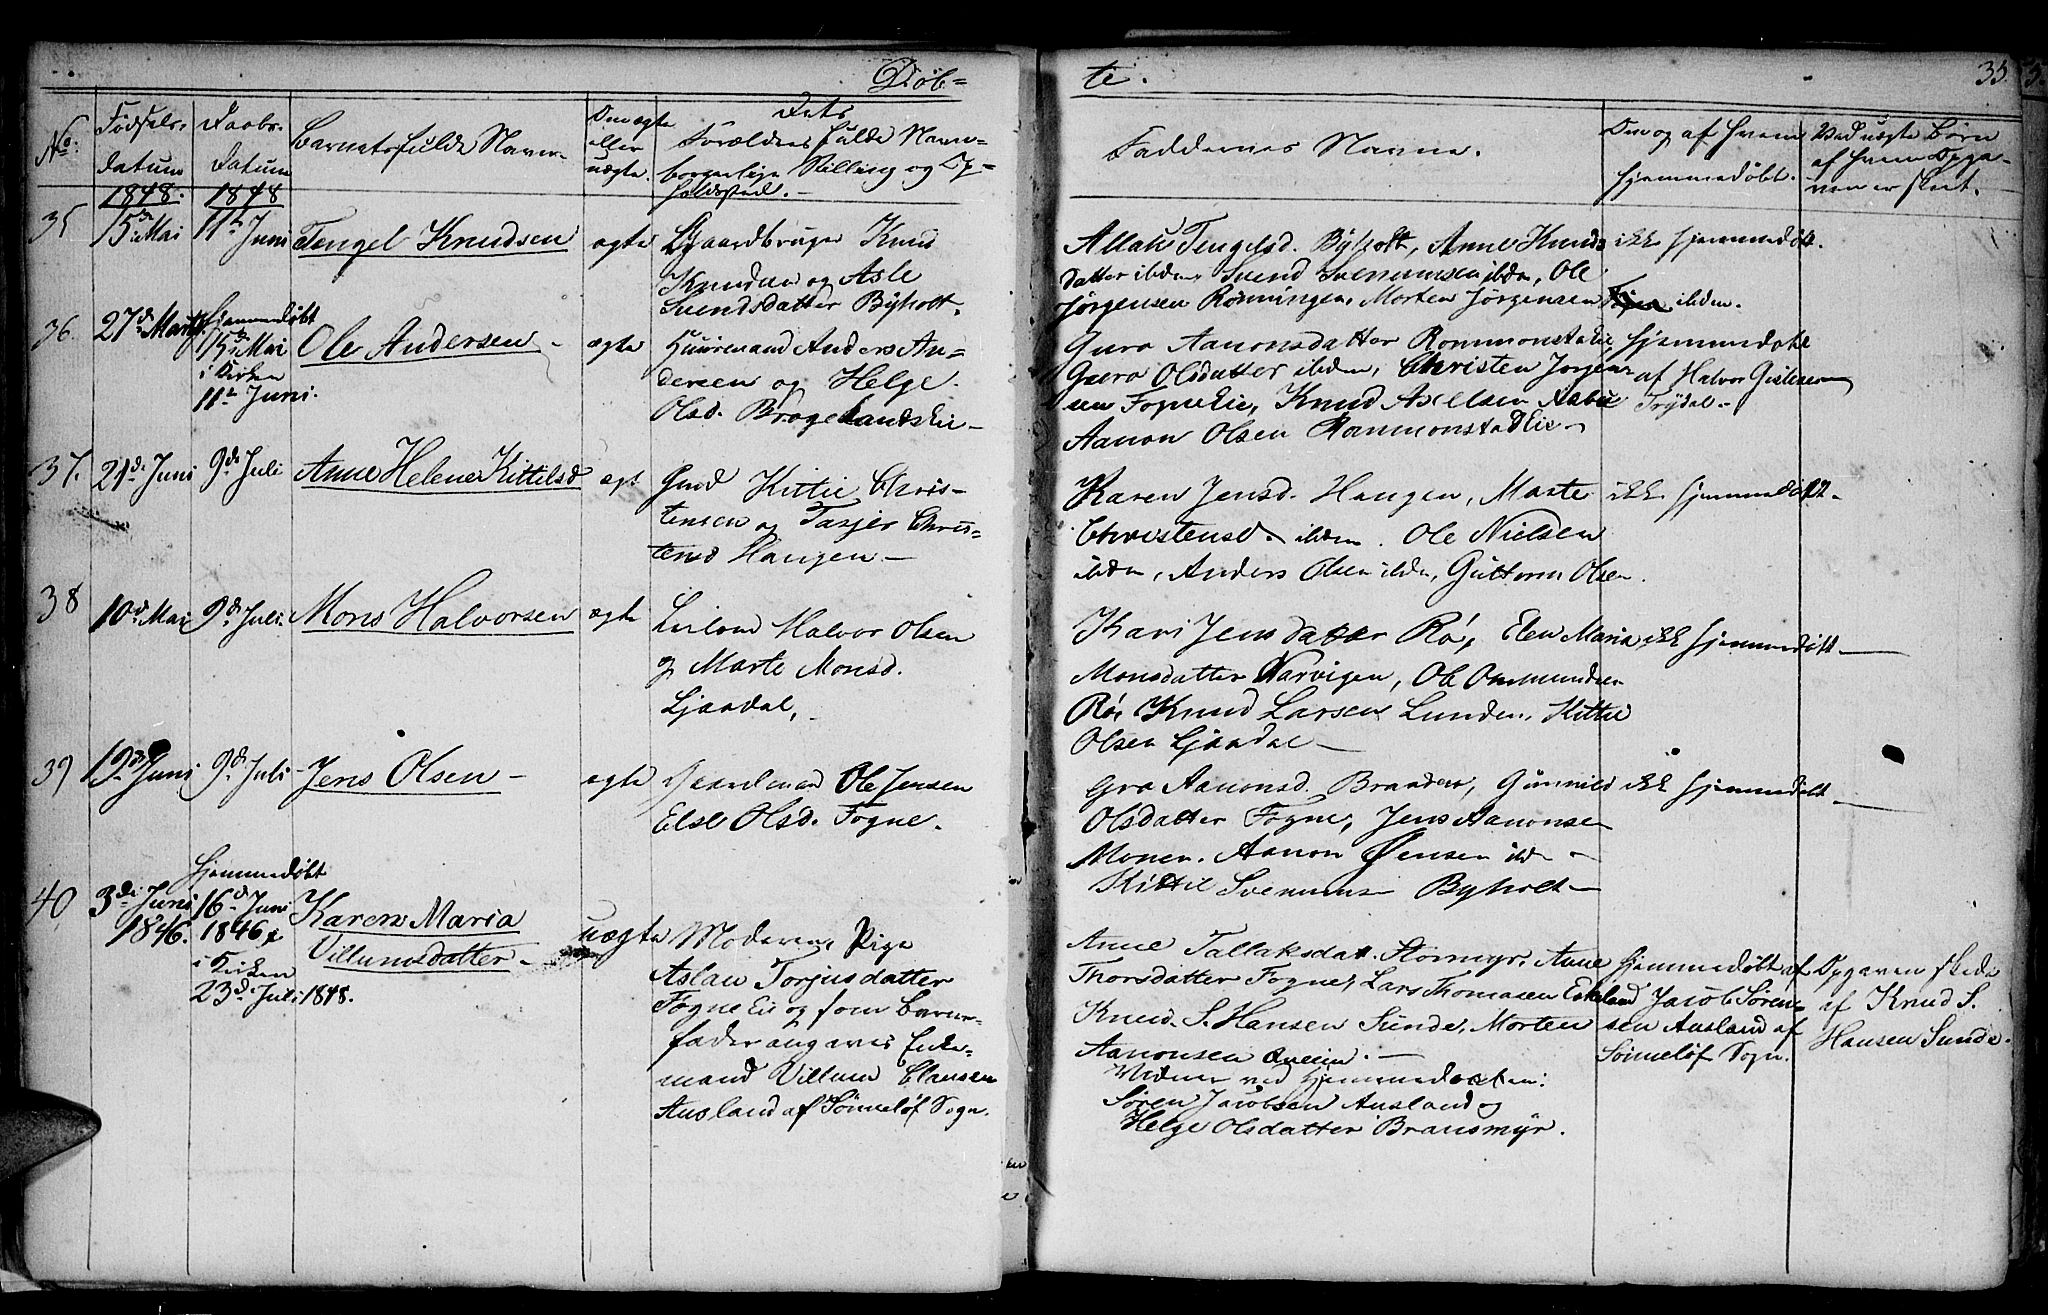 Døb=
te.
35
No:
Fødsels-
datum
1848.
Daabs-
Datum
1848
Barnets fulde Navn
Om ægte
eller
uægte.
Dets
Forældres fulde Navne
borgerlige Stilling og Op=
holdssted.
Faddernes Navne.
Om og af hvem
hjemmedøbt.
Ved uægte Børn
af hvem Opga-
ven er skeet.
35
15de Mai
11te Juni
Tengel Knudsen
ægte
Gaardbruger Knud
Knudsen og Asle
Svendsdatter Byholt.
Allak Tengelsd. Byholt, Anne Knuds
datter ibden, Svend Svenumsen ibdn, Ole
Jørgensen Rønningen, Morten Jørgensen ibden.
ikke hjemmedøbt.
36.
27de Marts
Hjemmedøbt
15de Mai
i Kirken
11te Juni.
Ole Andersen
ægte
Anders An=
dersen og Helge
Olsd. Brogelandslie
Guro Aanonsdatter Rommonstadlie
Guro Olsdatter ibden, Christen Jørgen-
sen Fognelie, Knud Axelsen
Aanon Olsen Rommonstadlie
hjemmedøbt
af Halvor Gislesen
Trydal
37.
21de Juni
9de Juli
Anne Helene Kittilsd
ægt
Gmd Kittil Chris-
tensen og Tarjer Chris-
tensd Haugen
Karen Jensd. Haugen, Marte
Christensd. ibden. Ole Nielsen
ibden, Anders Olsen ibdn, Guttorm Olsen.
ikke hjemmedøbt
38
10de Mai
9de Juli.
Mons Halvorsen
ægte
Leilænd Halvor Olsen
og Marte Monsd.
Ljaadal,
Kari Jensdatter Rø, Elen Maria
Monsdatter Narvigen, Ole Ommundsen
Rø, Knud Larsen Lunden, Kittil
Olsen Ljaadal
ikke hjemmedøbt
39
19de Juni
9de Juli
Jens Olsen
ægte
Gaardmand Ole Jensen
Else Olsd. Fogne.
Gro Aanonsd. Braaden, Gunnild
Olsdatter Fogne, Jens Aanonsen
Monen. Aanon Jensen ibdn
Kittil Svenums Byholt
ikke hjemmedøbt
40
3de Juni
1846.
Hjemmedøbt
16de Juni
1846,
i Kirken
23de Juli 1848.
Karen Maria
Villumsdatter
uægte
Moderen, Pige
Aslau Torjusdatter
Fogne Eie og som Barne-
fader angives Enke-
mand Villum Clausen
Ausland af Sønneløf Sogn.
Anne Tallaksdat. Stormyr, Anne
Thorsdatter Fogne, Lars Thomasen Eskeland
Knud. S. Hansen Sunde, Morten
Aanonsen
Vidner ved Hjemmedaaben:
Søren Jacobsen Ausland og
Helge Olsdatter Bransmyr.
hjemmedøbt af
Jacob Søren-
sen Ausland af
Sønneløf Sogn.
Opgaven skede
af Knud S.
Hansen Sunde.